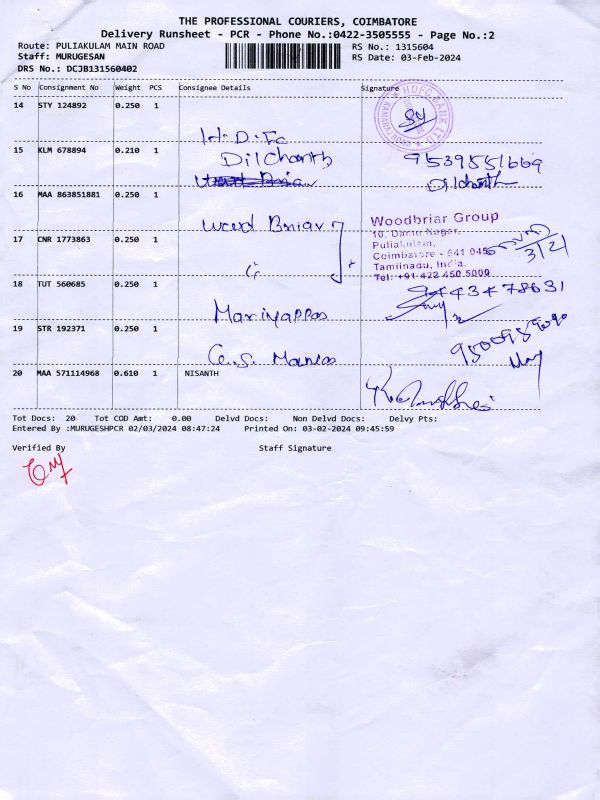 THE PROFESSIONAL COURIERS, COIMBATORE
Delivery Runsheet - PCR - Phone No.:0422-3505555 - Page No.:2
Route: PULIAKULAM MAIN ROAD
RS No.: 1315604
Staff: MURUGESAN
RS Date: 03-Feb-2024
DRS No.: DCJB131560402
S No Consignment No Weight PCS Consignee Details Signature
14 STY 124892 0.250 1
H.D.Fc
HDFC BANK LTD.
15 KLM 678894 0.210 1
Dilchanth
Dilchanth
16 MAA 863851881 0.250 1
Woodbriar Group
Puliakulam,
Coimbatore - 641 045
Tamilnadu, India.
Tel: +91-422 450 5009
3/2
17 CNR 1773863 0.250 1
18 TUT 560685 0.250 1
Mariyappan
19 STR 192371 0.250 1
20 MAA 571114968 0.610 1 NISANTH
Tot Docs: 20 Tot COD Amt: 0.00 Delvd Docs: Non Delvd Docs: Delvy Pts:
Entered By :MURUGESHPCR 02/03/2024 08:47:24 Printed On: 03-02-2024 09:45:59
Verified By Staff Signature